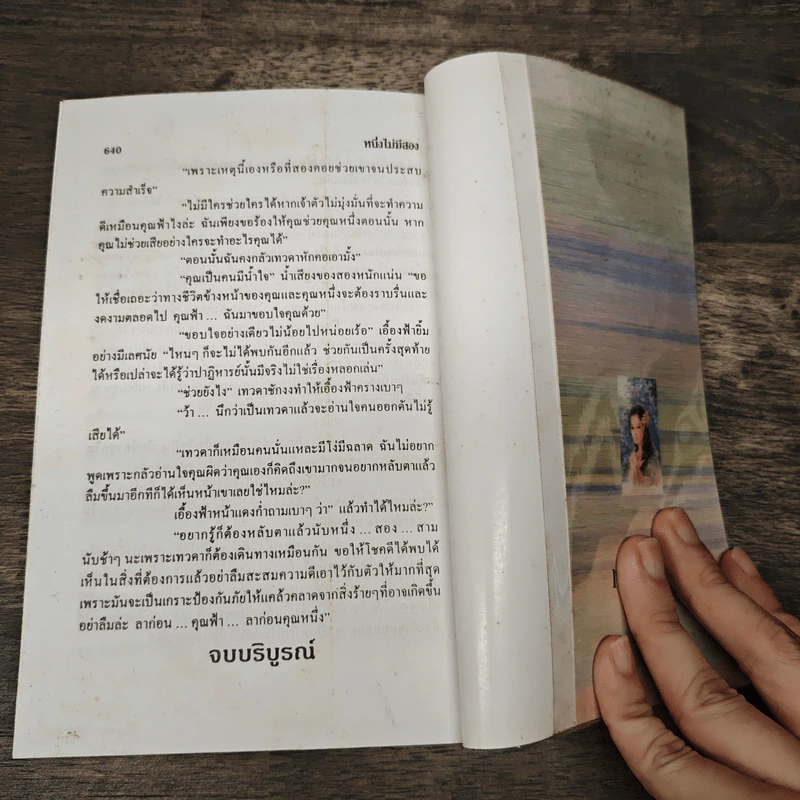 640
หนึ่งไม่มีสอง
“เพราะเหตุนี้เองหรือที่สองคอยช่วยเขาจนประสบ
ความสำเร็จ”
“ไม่มีใครช่วยใครได้หากเจ้าตัวไม่มุ่งมั่นที่จะทำความ
ดีเหมือนคุณฟ้าไงล่ะ ฉันเพียงขอร้องให้คุณช่วยคุณหนึ่งตอนนั้น หาก
คุณไม่ช่วยเสียอย่างใครจะทำอะไรคุณได้”
“ตอนนั้นฉันคงกลัวเทวดาหักคอเอามั้ง”
“คุณเป็นคนมีน้ำใจ” น้ำเสียงของสองหนักแน่น “ขอ
ให้เชื่อเถอะว่าทางชีวิตข้างหน้าของคุณและคุณหนึ่งจะต้องราบรื่นและ
งดงามตลอดไป คุณฟ้า ... ฉันมาขอบใจคุณด้วย”
“ขอบใจอย่างเดียวไม่น้อยไปหน่อยเร้อ” เอื้องฟ้ายิ้ม
อย่างมีเลศนัย “ไหนๆ ก็จะไม่ได้พบกันอีกแล้ว ช่วยกันเป็นครั้งสุดท้าย
ได้หรือเปล่าจะได้รู้ว่าปาฏิหารย์นั้นมีจริงไม่ใช่เรื่องหลอกเล่น”
“ช่วยยังไง” เทวดาชักงงทำให้เอื้องฟ้าครางเบาๆ
“ว้า ... นึกว่าเป็นเทวดาแล้วจะอ่านใจคนออกดันไม่รู้
เสียได้”
“เทวดาก็เหมือนคนนั่นแหละมีโง่มีฉลาด ฉันไม่อยาก
พูดเพราะกลัวอ่านใจคุณผิดว่าคุณเองก็คิดถึงเขามากจนอยากหลับตาแล้ว
ลืมขึ้นมาอีกทีก็ได้เห็นหน้าเขาเลยใช่ไหมล่ะ?”
เอื้องฟ้าหน้าแดงก่ำถามเบาๆ ว่า” แล้วทำได้ไหมล่ะ?”
“อยากรู้ก็ต้องหลับตาแล้วนับหนึ่ง ... สอง ... สาม
นับช้าๆ นะเพราะเทวดาก็ต้องเดินทางเหมือนกัน ขอให้โชคดีได้พบได้
เห็นในสิ่งที่ต้องการแล้วอย่าลืมสะสมความดีเอาไว้กับตัวให้มากที่สุด
เพราะมันจะเป็นเกราะป้องกันภัยให้แคล้วคลาดจากสิ่งร้ายๆที่อาจเกิดขึ้น
อย่าลืมล่ะ ลาก่อน ... คุณฟ้า ... ลาก่อนคุณหนึ่ง”
จบบริบูรณ์